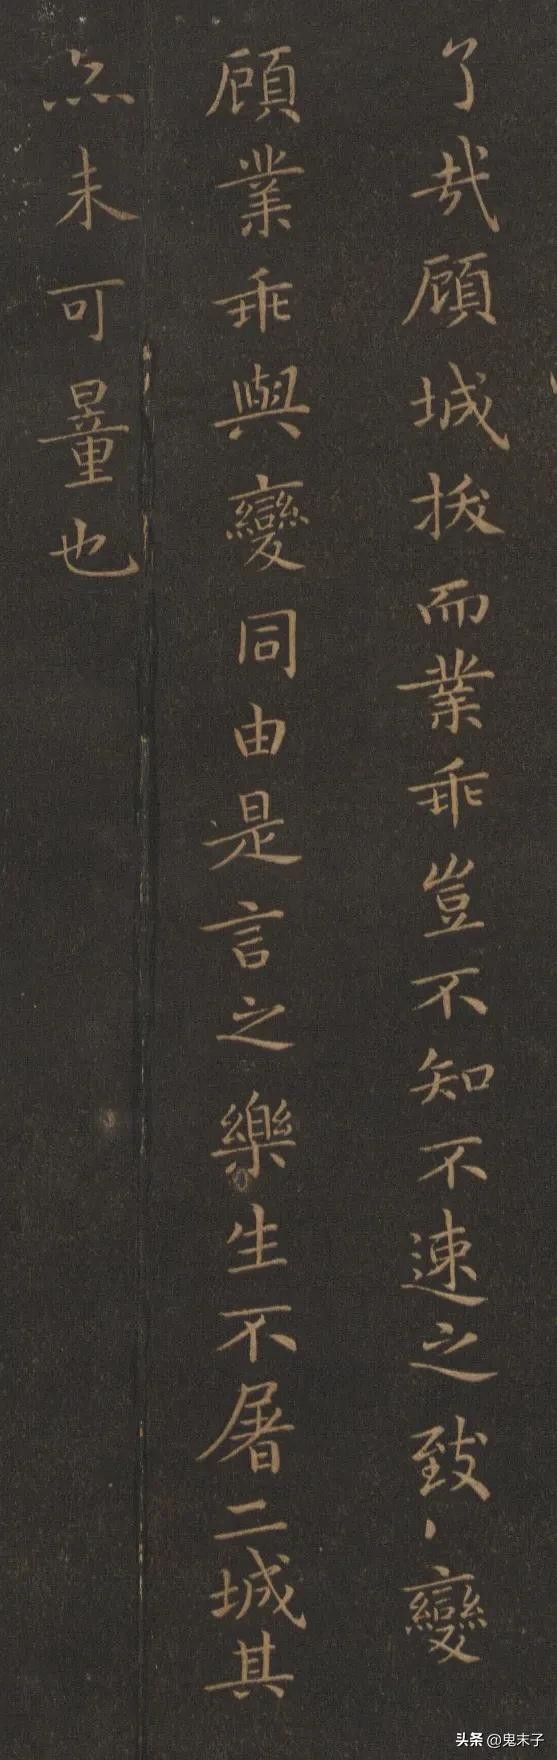 了哉顧城拔而業乖豈不知不速之致丶變
顧業乖與變同由是言之樂生不屠二城其
亦未可量也
头条 @鬼末子